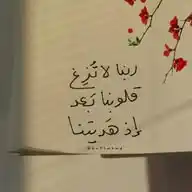 ربنا لا تُزِغ
قلوبنا بَعد
إذ هَديتنا